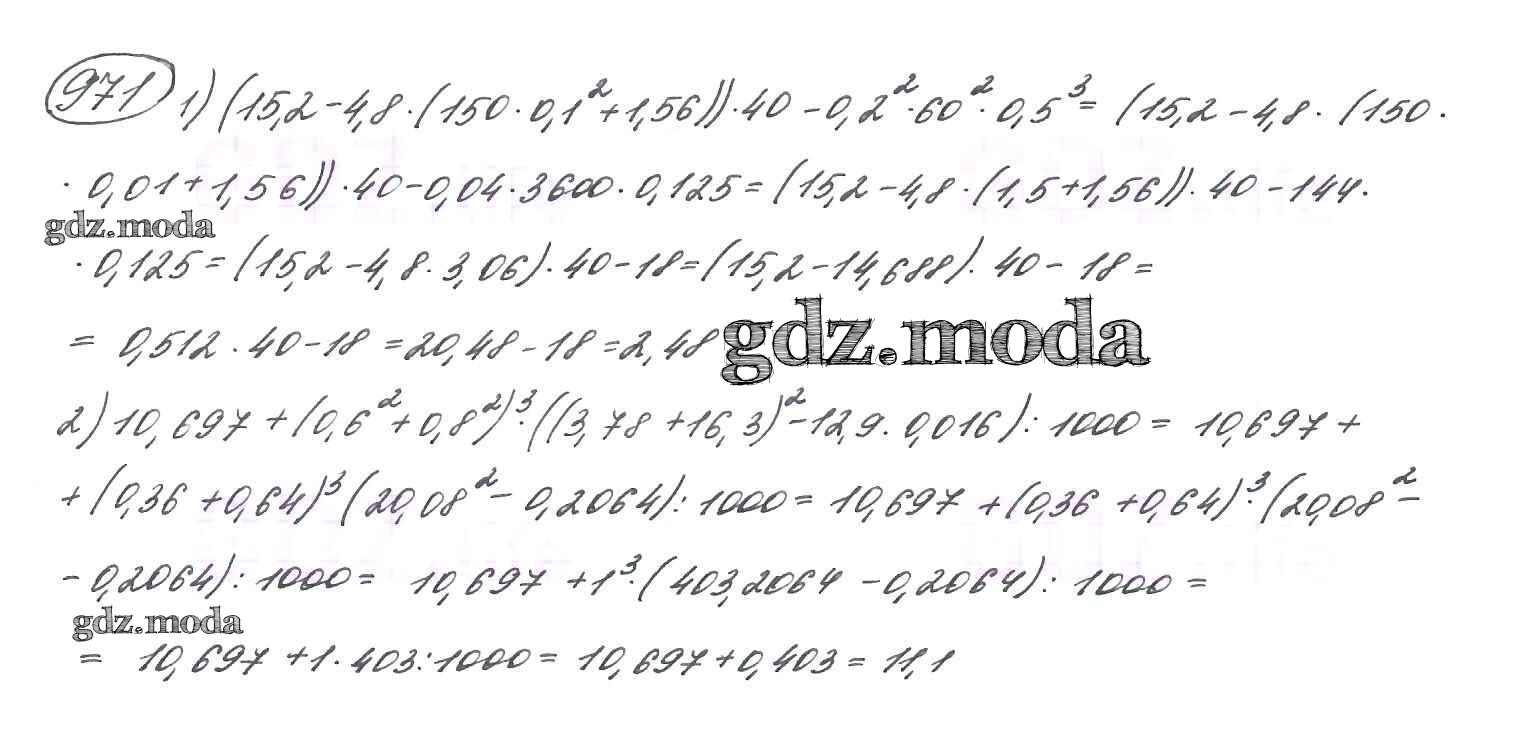 971 1) (15,2 - 4,8 · (150 · 0,1² + 1,56)) · 40 - 0,2² · 60² · 0,5³ = (15,2 - 4,8 · (150 ·
· 0,01 + 1,56)) · 40 - 0,04 · 3600 · 0,125 = (15,2 - 4,8 · (1,5 + 1,56)) · 40 - 144 ·
gdz.moda
· 0,125 = (15,2 - 4,8 · 3,06) · 40 - 18 = (15,2 - 14,688) · 40 - 18 =
= 0,512 · 40 - 18 = 20,48 - 18 = 2,48
gdz.moda
2) 10,697 + (0,6² + 0,8²)³ · ((3,78 + 16,3)² - 12,9 · 0,016) : 1000 = 10,697 +
+ (0,36 + 0,64)³ (20,08² - 0,2064) : 1000 = 10,697 + (0,36 + 0,64)³ · (20,08² -
- 0,2064) : 1000 = 10,697 + 1³ · (403,2064 - 0,2064) : 1000 =
gdz.moda
= 10,697 + 1 · 403 : 1000 = 10,697 + 0,403 = 11,1